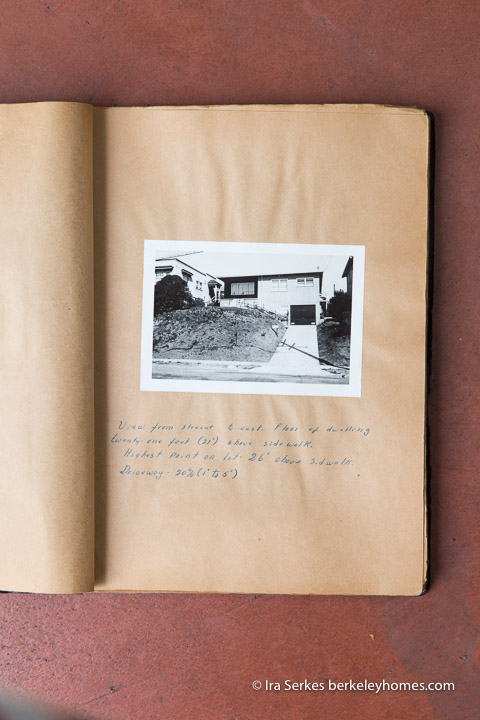 View from street to east. Floor of dwelling
twenty-one foot (21') above sidewalk.
Highest point on lot - 26' above sidwalk.
Driveway - 20% (1' to 5')
© Ira Serkes berkeleyhomes.com